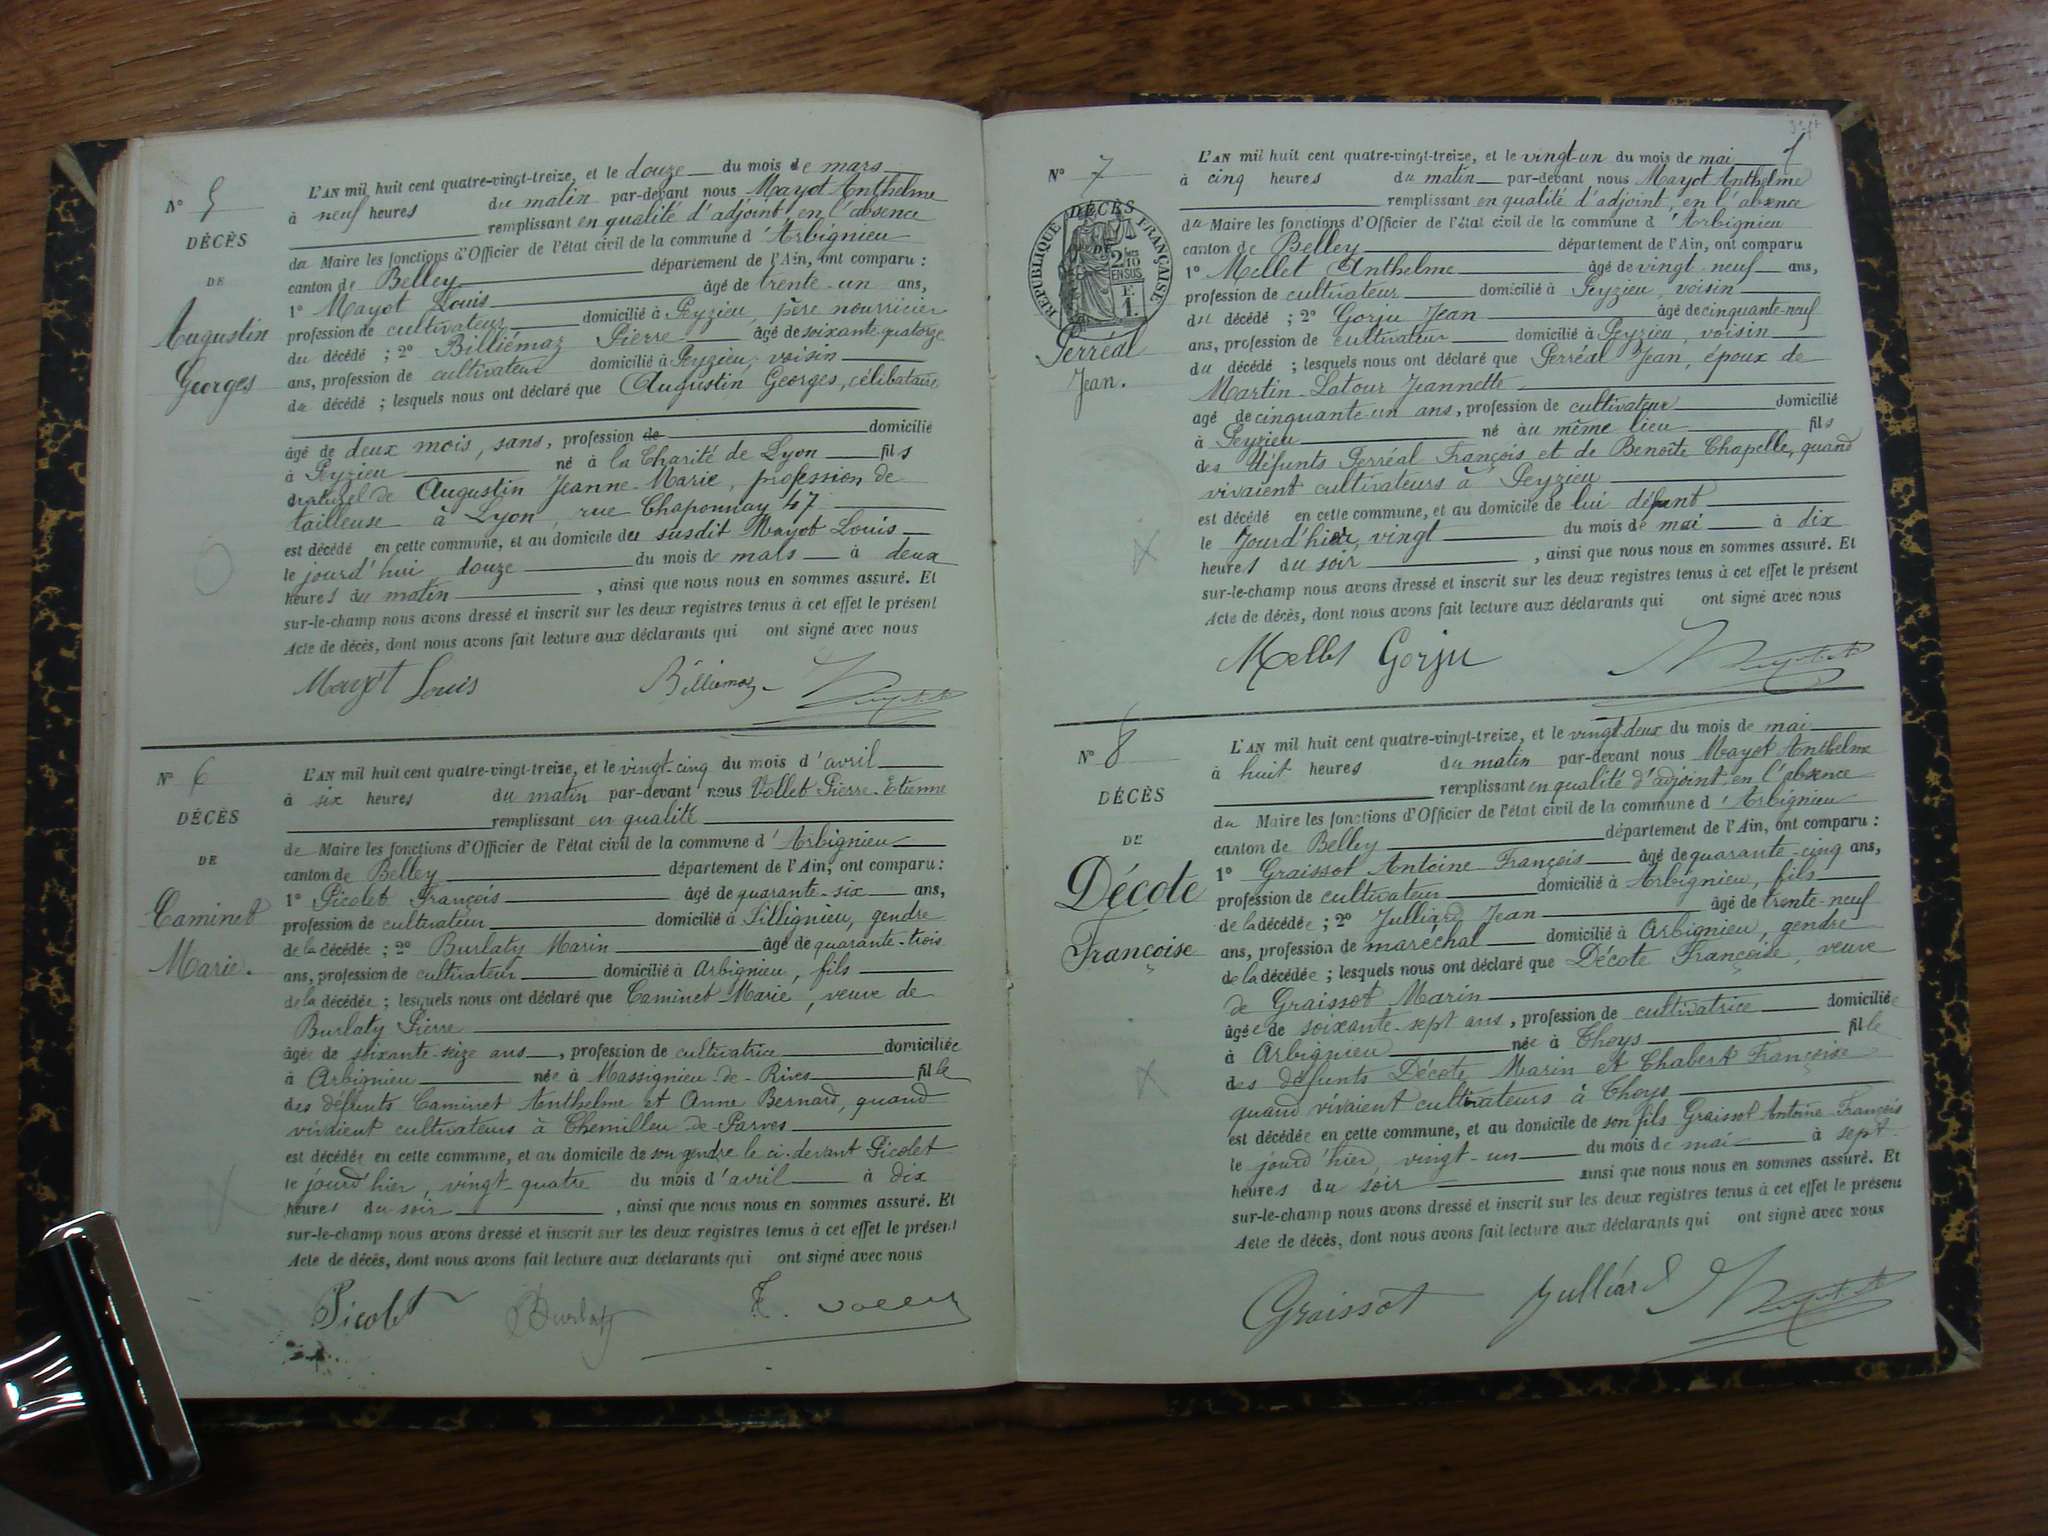 N° 5
DÉCÈS
DE
Augustin
Georges
L'AN mil huit cent quatre-vingt-treize, et le douze du mois de mars
à neuf heures du matin par-devant nous Mayot Anthelme
remplissant en qualité d'adjoint, en l'absence
du Maire les fonctions d'Officier de l'état civil de la commune d'Arbignieu
canton de Belley département de l'Ain, ont comparu :
1° Mayot Louis âgé de trente-un ans,
profession de cultivateur domicilié à Peyzieu, père nourricier
du décédé ; 2° Billiémaz Pierre âgé de soixante-quatorze
ans, profession de cultivateur domicilié à Peyzieu, voisin
du décédé ; lesquels nous ont déclaré que Augustin Georges, célibataire
âgé de deux mois, sans, profession de domicilié
à Peyzieu né à la Charité de Lyon fils
naturel de Augustin Jeanne-Marie, profession de
tailleuse à Lyon, rue Chaponnay 47
est décédé en cette commune, et au domicile du susdit Mayot Louis
le jourd'hui douze du mois de mars à deux
heures du matin, ainsi que nous nous en sommes assuré. Et
sur-le-champ nous avons dressé et inscrit sur les deux registres tenus à cet effet le présent
Acte de décès, dont nous avons fait lecture aux déclarants qui ont signé avec nous
Mayot Louis Billiemaz
N° 6
DÉCÈS
DE
Caminet
Marie.
L'AN mil huit cent quatre-vingt-treize, et le vingt-cinq du mois d'avril
à six heures du matin par-devant nous Vollet Pierre-Etienne
remplissant en qualité
de Maire les fonctions d'Officier de l'état civil de la commune d'Arbignieu
canton de Belley département de l'Ain, ont comparu :
1° Picolet François âgé de quarante-six ans,
profession de cultivateur domicilié à Sillignieu, gendre
de la décédée ; 2° Burlaty Marin âgé de quarante-trois
ans, profession de cultivateur domicilié à Arbignieu, fils
de la décédée ; lesquels nous ont déclaré que Caminet Marie, veuve de
Burlaty Pierre
âgée de soixante-seize ans, profession de cultivatrice domiciliée
à Arbignieu née à Massignieu-de-Rives fille
des défunts Caminet Anthelme et Anne Bernard, quand
vivaient cultivateurs à Chemilleu-de-Parves
est décédée en cette commune, et au domicile de son gendre le ci-devant Picolet
le jourd'hier, vingt-quatre du mois d'avril à dix
heures du soir, ainsi que nous nous en sommes assuré. Et
sur-le-champ nous avons dressé et inscrit sur les deux registres tenus à cet effet le présent
Acte de décès, dont nous avons fait lecture aux déclarants qui ont signé avec nous
Picolet Burlaty
N° 7
RÉPUBLIQUE FRANÇAISE
DÉCÈS
DE
2 10mes
EN SUS
F.
1.
Perréal
Jean.
L'AN mil huit cent quatre-vingt-treize, et le vingt-un du mois de mai
à cinq heures du matin par-devant nous Mayot Anthelme
remplissant en qualité d'adjoint, en l'absence
du Maire les fonctions d'Officier de l'état civil de la commune d'Arbignieu
canton de Belley département de l'Ain, ont comparu
1° Mellet Anthelme âgé de vingt-neuf ans,
profession de cultivateur domicilié à Peyzieu, voisin
du décédé ; 2° Gorju Jean âgé de cinquante-neuf
ans, profession de cultivateur domicilié à Peyzieu, voisin
du décédé ; lesquels nous ont déclaré que Perréal Jean, époux de
Martin-Latour Jeannette
âgé de cinquante-un ans, profession de cultivateur domicilié
à Peyzieu né au même lieu fils
des défunts Perréal François et de Benoîte Chapelle, quand
vivaient cultivateurs à Peyzieu
est décédé en cette commune, et au domicile de lui défunt
le jourd'hier, vingt du mois de mai à dix
heures du soir, ainsi que nous nous en sommes assuré. Et
sur-le-champ nous avons dressé et inscrit sur les deux registres tenus à cet effet le présent
Acte de décès, dont nous avons fait lecture aux déclarants qui ont signé avec nous
Mellet Gorju
N° 8
DÉCÈS
DE
Décote
Françoise
L'AN mil huit cent quatre-vingt-treize, et le vingt-deux du mois de mai
à huit heures du matin par-devant nous Mayot Anthelme
remplissant en qualité d'adjoint en l'absence
du Maire les fonctions d'Officier de l'état civil de la commune d'Arbignieu
canton de Belley département de l'Ain, ont comparu :
1° Graissot Antoine-François âgé de quarante-cinq ans,
profession de cultivateur domicilié à Arbignieu, fils
de la décédée ; 2° Julliard Jean âgé de trente-neuf
ans, profession de maréchal domicilié à Arbignieu, gendre
de la décédée ; lesquels nous ont déclaré que Décote Françoise, veuve
de Graissot Marin
âgée de soixante-sept ans, profession de cultivatrice domiciliée
à Arbignieu née à Thoys fille
des défunts Décote Marin et Chabert Françoise
quand vivaient cultivateurs à Thoys
est décédée en cette commune, et au domicile de son fils Graissot Antoine-François
le jourd'hier, vingt-un du mois de mai à sept
heures du soir ainsi que nous nous en sommes assuré. Et
sur-le-champ nous avons dressé et inscrit sur les deux registres tenus à cet effet le présent
Acte de décès, dont nous avons fait lecture aux déclarants qui ont signé avec nous
Graissot Julliard